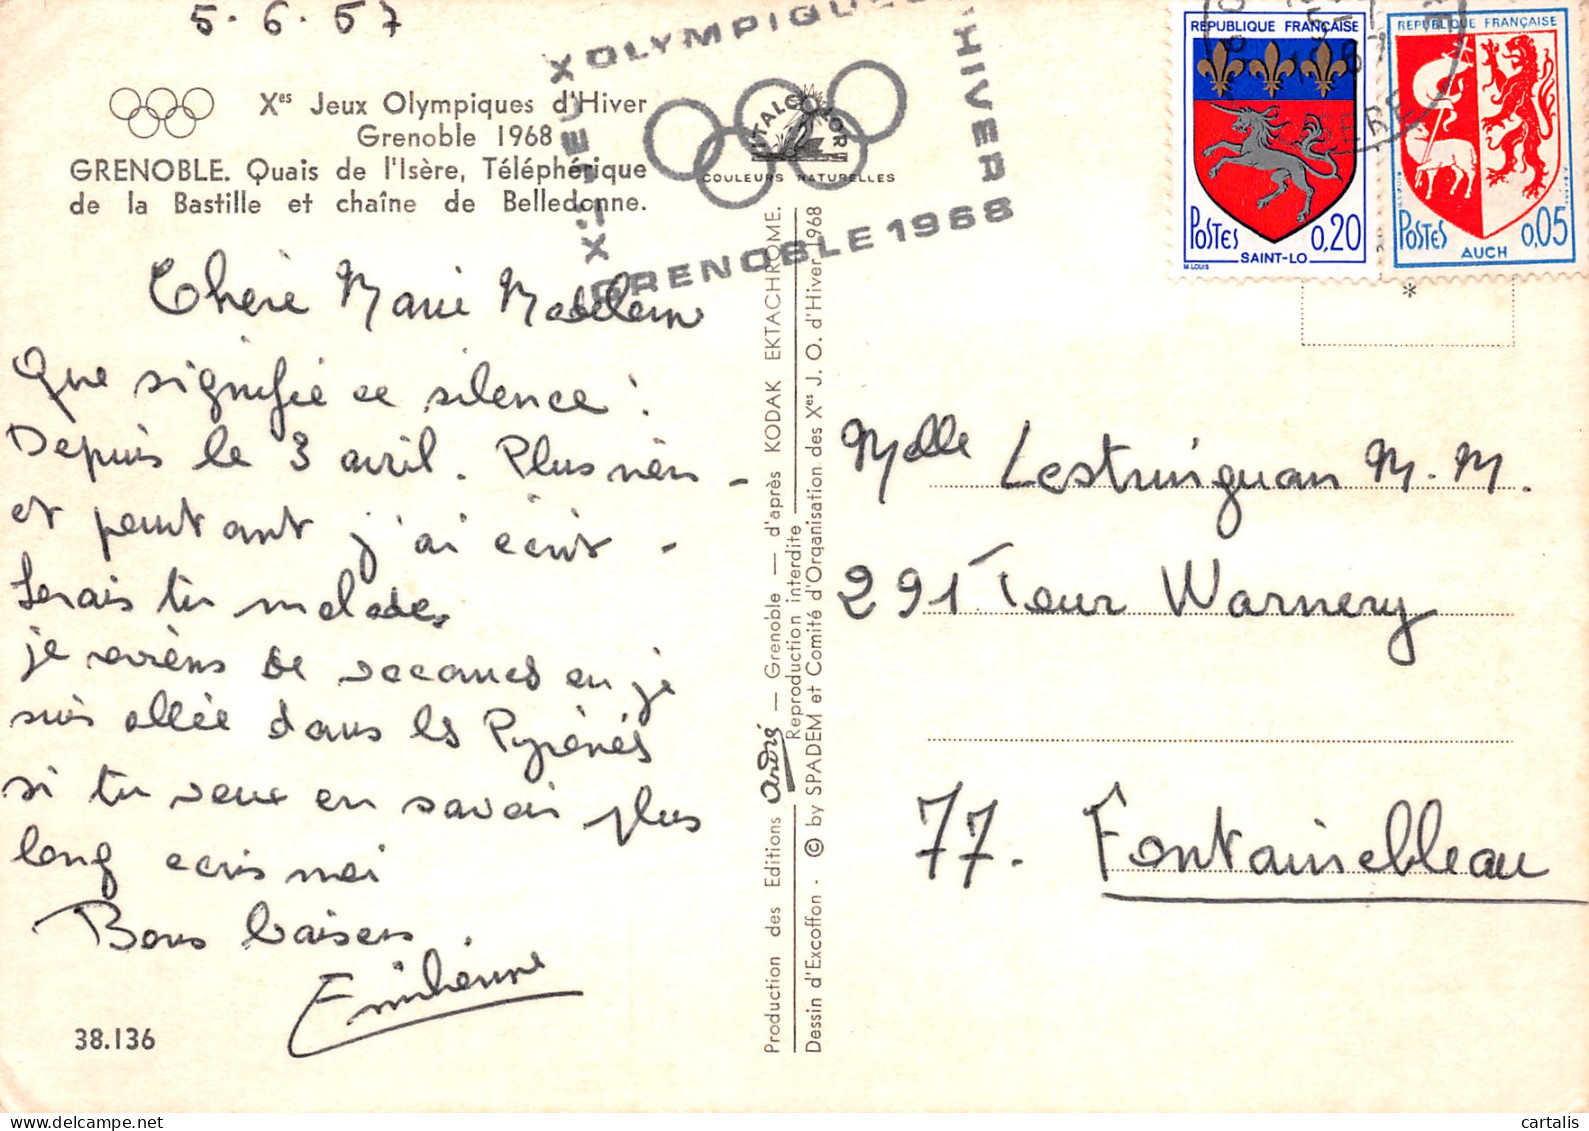 5.6.57
Xes Jeux Olympiques d'Hiver
Grenoble 1968
GRENOBLE. Quais de l'Isère, Téléphérique
de la Bastille et chaîne de Belledonne.
Chère Marie Madeleine
Que signifie ce silence !
Depuis le 3 avril. Plus rien -
et pourtant j'ai écrit -
Serais tu malade,
je reviens de vacances en je
suis allée dans les Pyrénées
si tu veux en savoir plus
long ecris moi
Bons baisers
Emilienne
38.136
Xes JEUX OLYMPIQUES D'HIVER
GRENOBLE 1968
ITALCOLOR
COULEURS NATURELLES
Production des Editions André — Grenoble — d'après KODAK EKTACHROME.
Reproduction interdite
Dessin d'Excoffon - © by SPADEM et Comité d'Organisation des Xes J. O. d'Hiver 1968
RÉPUBLIQUE FRANÇAISE
POSTES 0,20
SAINT-LO
M. LOUIS
RÉPUBLIQUE FRANÇAISE
POSTES 0,05
AUCH
ISERE
*
Melle Lestringuan M. M.
291 Tour Warnery
77. Fontainebleau
cartalis